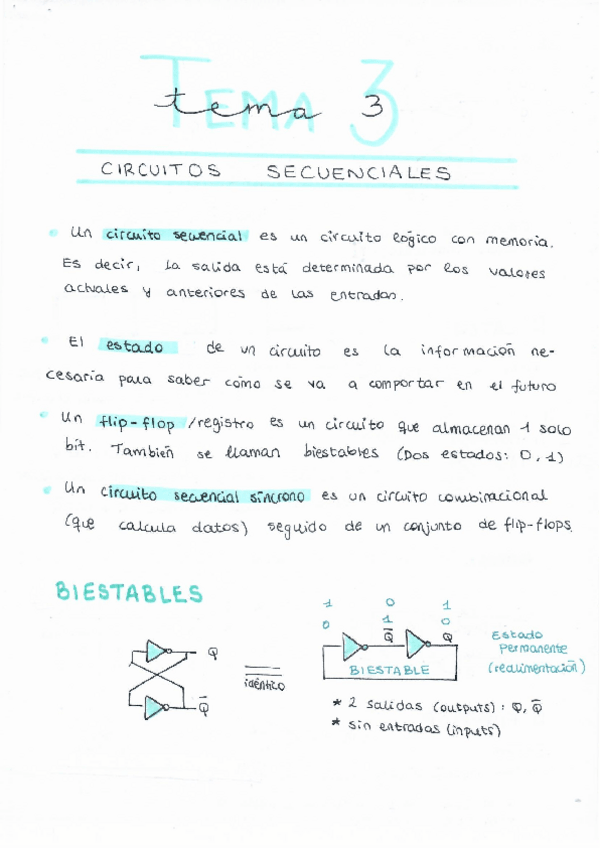 TEMA 3
tema 3
CIRCUITOS SECUENCIALES
• Un circuito secuencial es un circuito lógico con memoria.
Es decir, la salida está determinada por los valores
actuales y anteriores de las entradas.
• El estado de un circuito es la información ne-
cesaria para saber cómo se va a comportar en el futuro
• Un flip-flop /registro es un circuito que almacenan 1 solo
bit. También se llaman biestables (Dos estados: 0,1)
• Un circuito secuencial síncrono es un circuito combinacional
(que calcula datos) seguido de un conjunto de flip-flops.
BIESTABLES
1 0 1
0 1 0
Q̅ Q
Q
Q̅
idéntico
BIESTABLE
Estado
permanente
(realimentación)
* 2 salidas (outputs): Q, Q̅
* sin entradas (inputs)